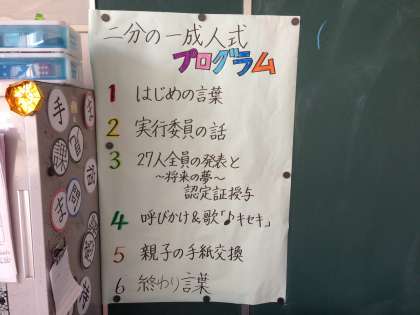 二分の一成人式
プログラム
1 はじめの言葉
2 実行委員の話
3 27人全員の発表と
〜将来の夢〜
認定証授与
4 呼びかけ&歌「♪キセキ」
5 親子の手紙交換
6 終わり言葉
手